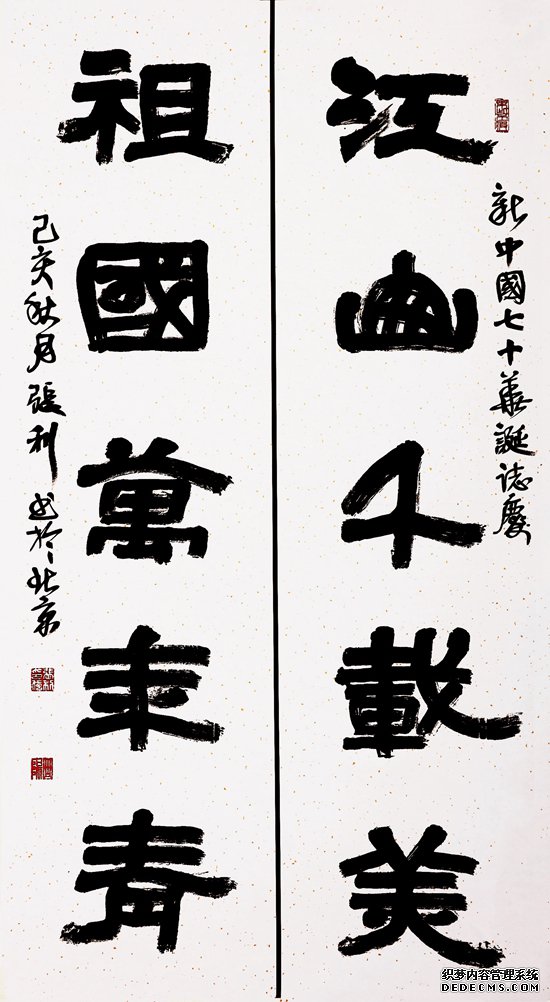 新中國七十華誕誌慶
江山千載美
祖國萬年青
己亥秋月張利書於北京
织梦内容管理系统
DEDECMS.COM